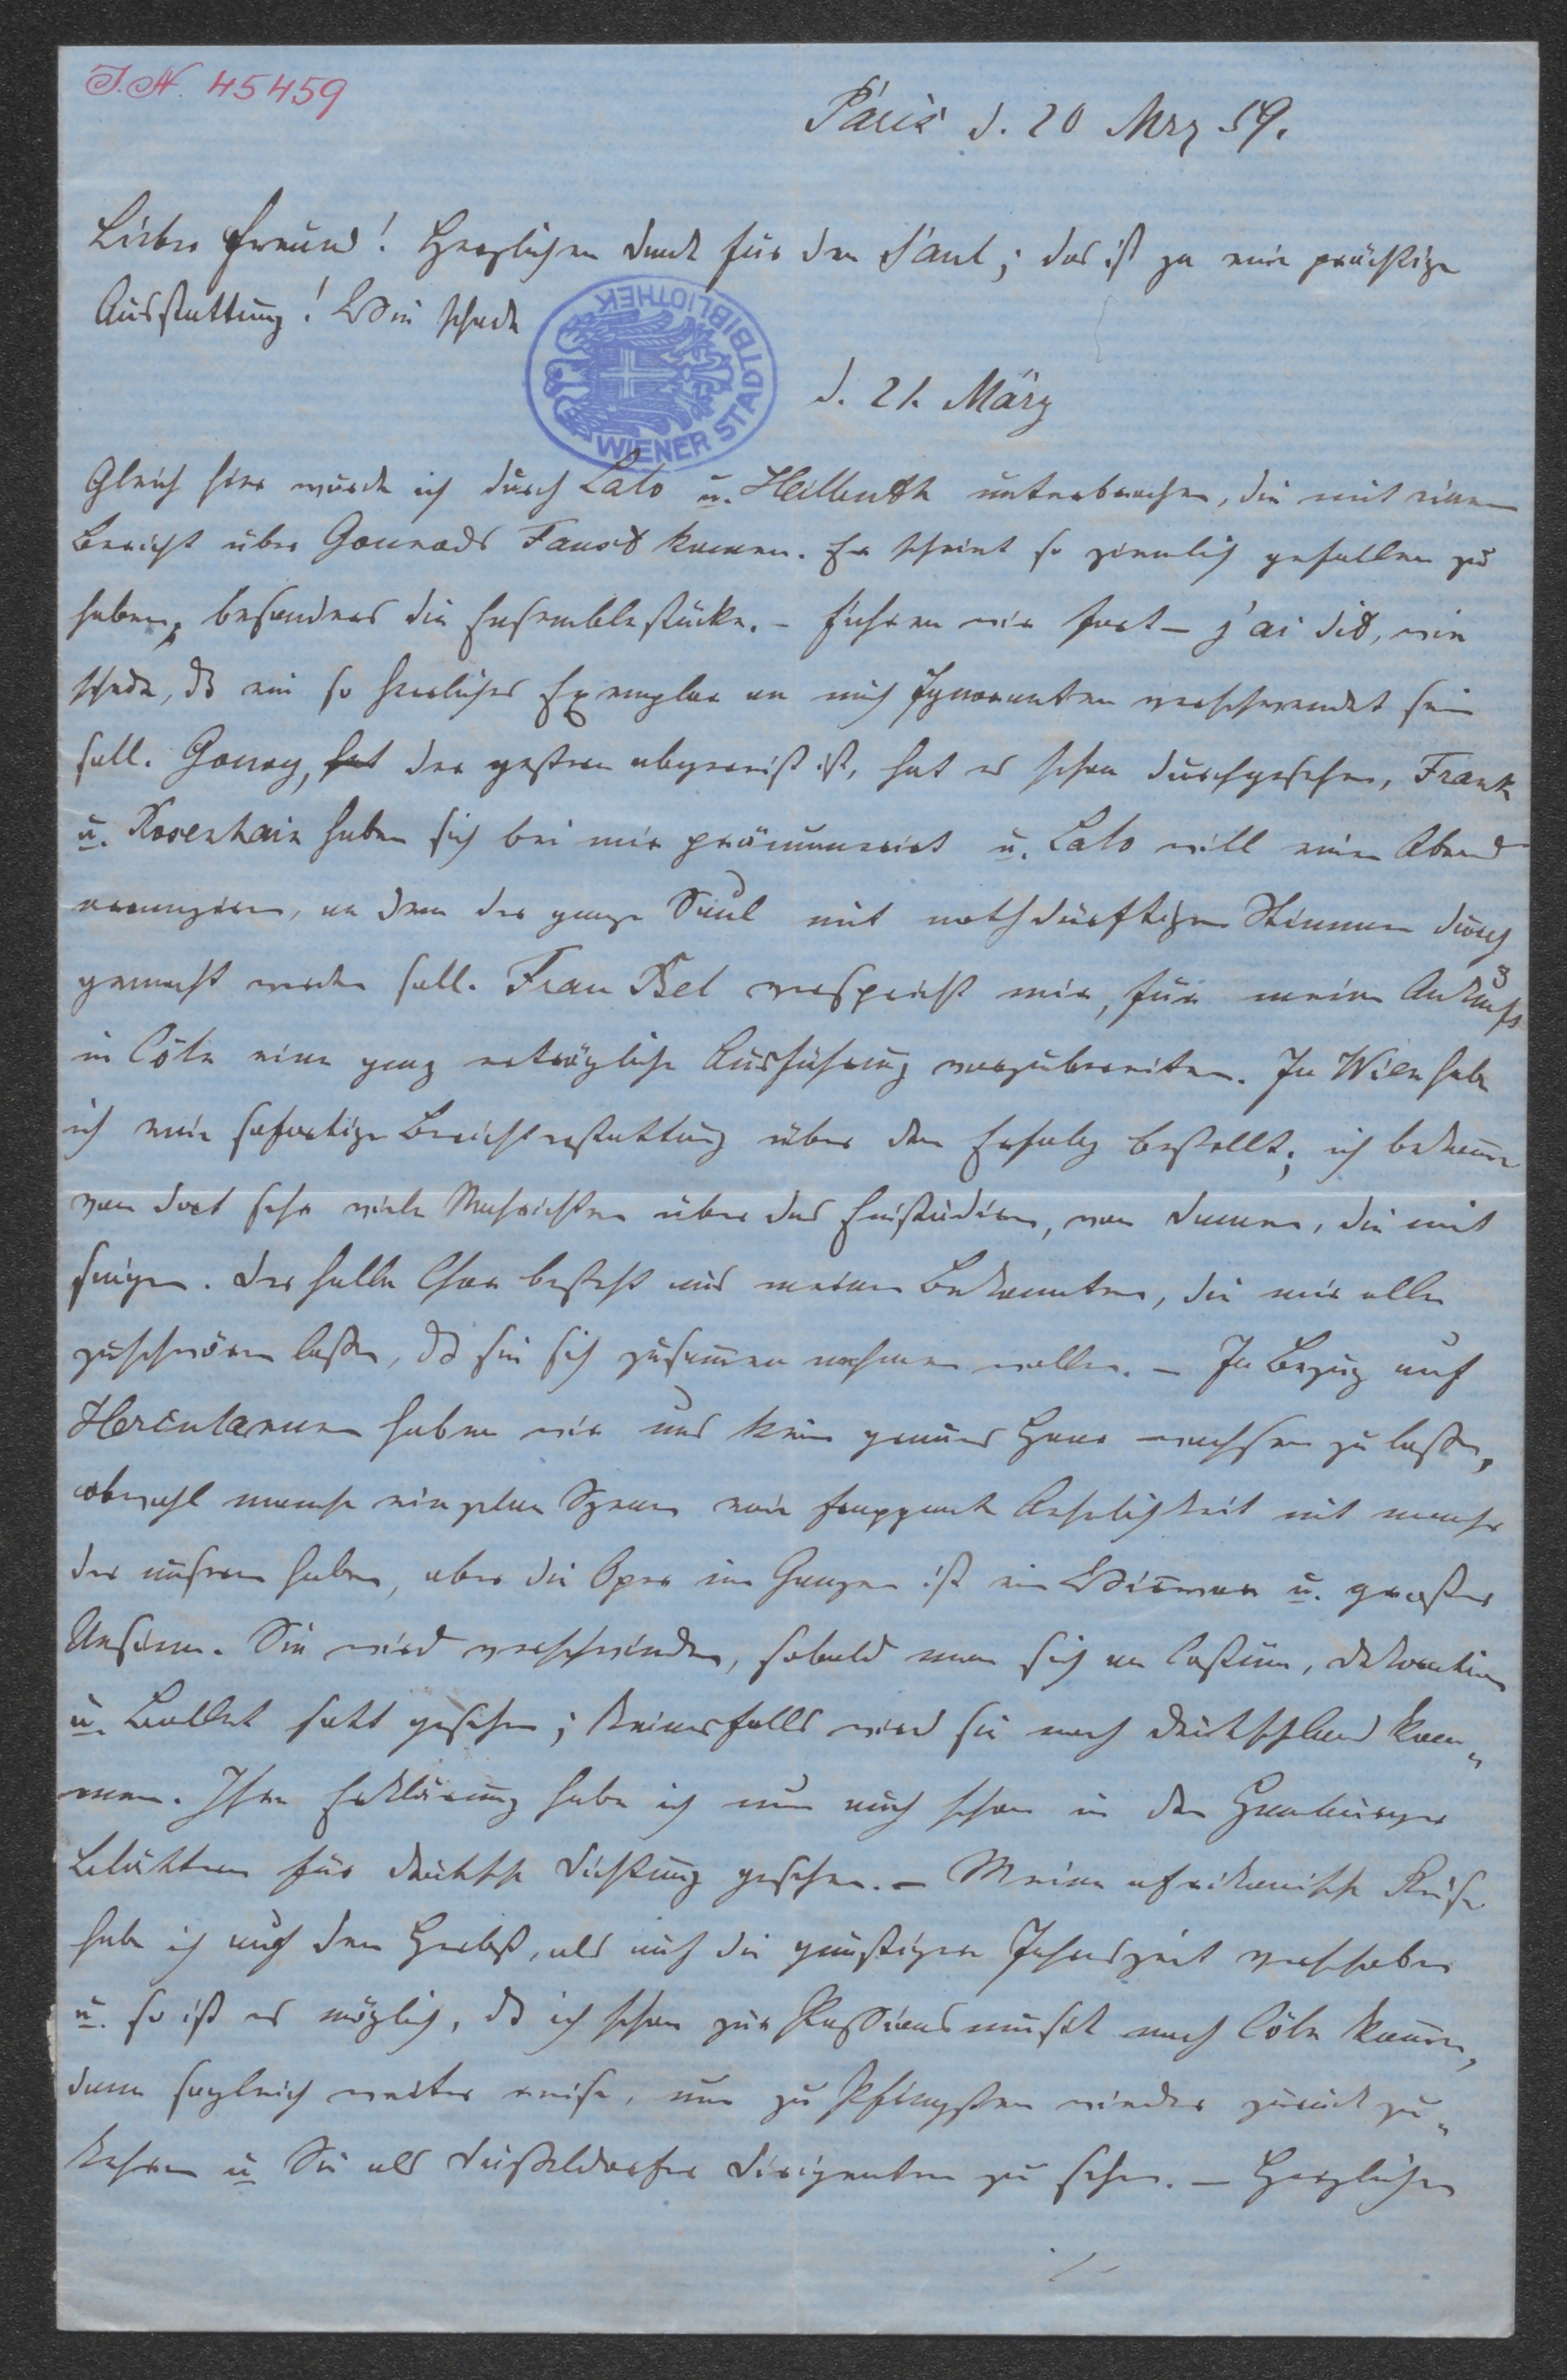 J.N. 45459
Paris d. 20 Mrz 59.
Lieber Freund! Herzlichen Dank für den Saul; das ist ja eine prächtige
Ausstattung! Wie schade
WIENER STADTBIBLIOTHEK
d. 21. März
Gleich hier wurde ich durch Lalo u. unterbrochen, die mit einem
Bericht über Gounods Faust kamen. Er scheint so ziemlich gefallen zu
haben, besonders die Ensemblestücke. – Fahren wir fort – j'ai dit, wie
schade, dß ein so herrliches Exemplar an mich Ignoranten verschwendet sein
soll. Gouvy, hat der gestern abgereist ist, hat es schon durchgesehen, Frank
u. Rosenhain haben sich bei mir pränumerirt u. Lalo will einen Abend
arrangiren, an dem der ganze Saul mit nothdürftigen Stimmen durch
gemacht werden soll. Frau verspricht mir, für meine Ankunft
in Cöln eine ganz erträgliche Aufführung vorzubereiten. In Wien habe
ich mir sofortige Berichterstattung über den Erfolg bestellt; ich bekomme
von dort sehr viele Nachrichten über das Einstudiren, von Damen, die mit
singen. Der halbe Chor besteht aus meinen Bekannten, die mir alle
zuschwören lassen, dß sie sich zusammen nehmen wollen. – In Bezug auf
Herculanum haben wir uns kein graues Haar wachsen zu lassen,
obwohl manche einzelne Scenen eine frappante Aehnlichkeit mit manchen
der unseren haben, aber die Oper im Ganzen ist ein Wirrwar u. großer
Unsinn. Sie wird verschwinden, sobald man sich an Costüm, Dekoration
u. Ballet satt gesehen; keinesfalls wird sie nach Deutschland kom„
men. Ihre Erklärung habe ich nun auch schon in den Hamburger
Blättern für deutsche Dichtung gesehen. – Meine afrikanische Reise
habe ich auf den Herbst, als auch die günstigere Jahreszeit verschoben
u. so ist es möglich, dß ich schon zur Passionsmusik nach Cöln komme,
dann sogleich weiter reise, um zu Pfingsten wieder zurück zu„
kehren u Sie als Düsseldorfer Dirigenten zu sehen. – Herzlichen
./.